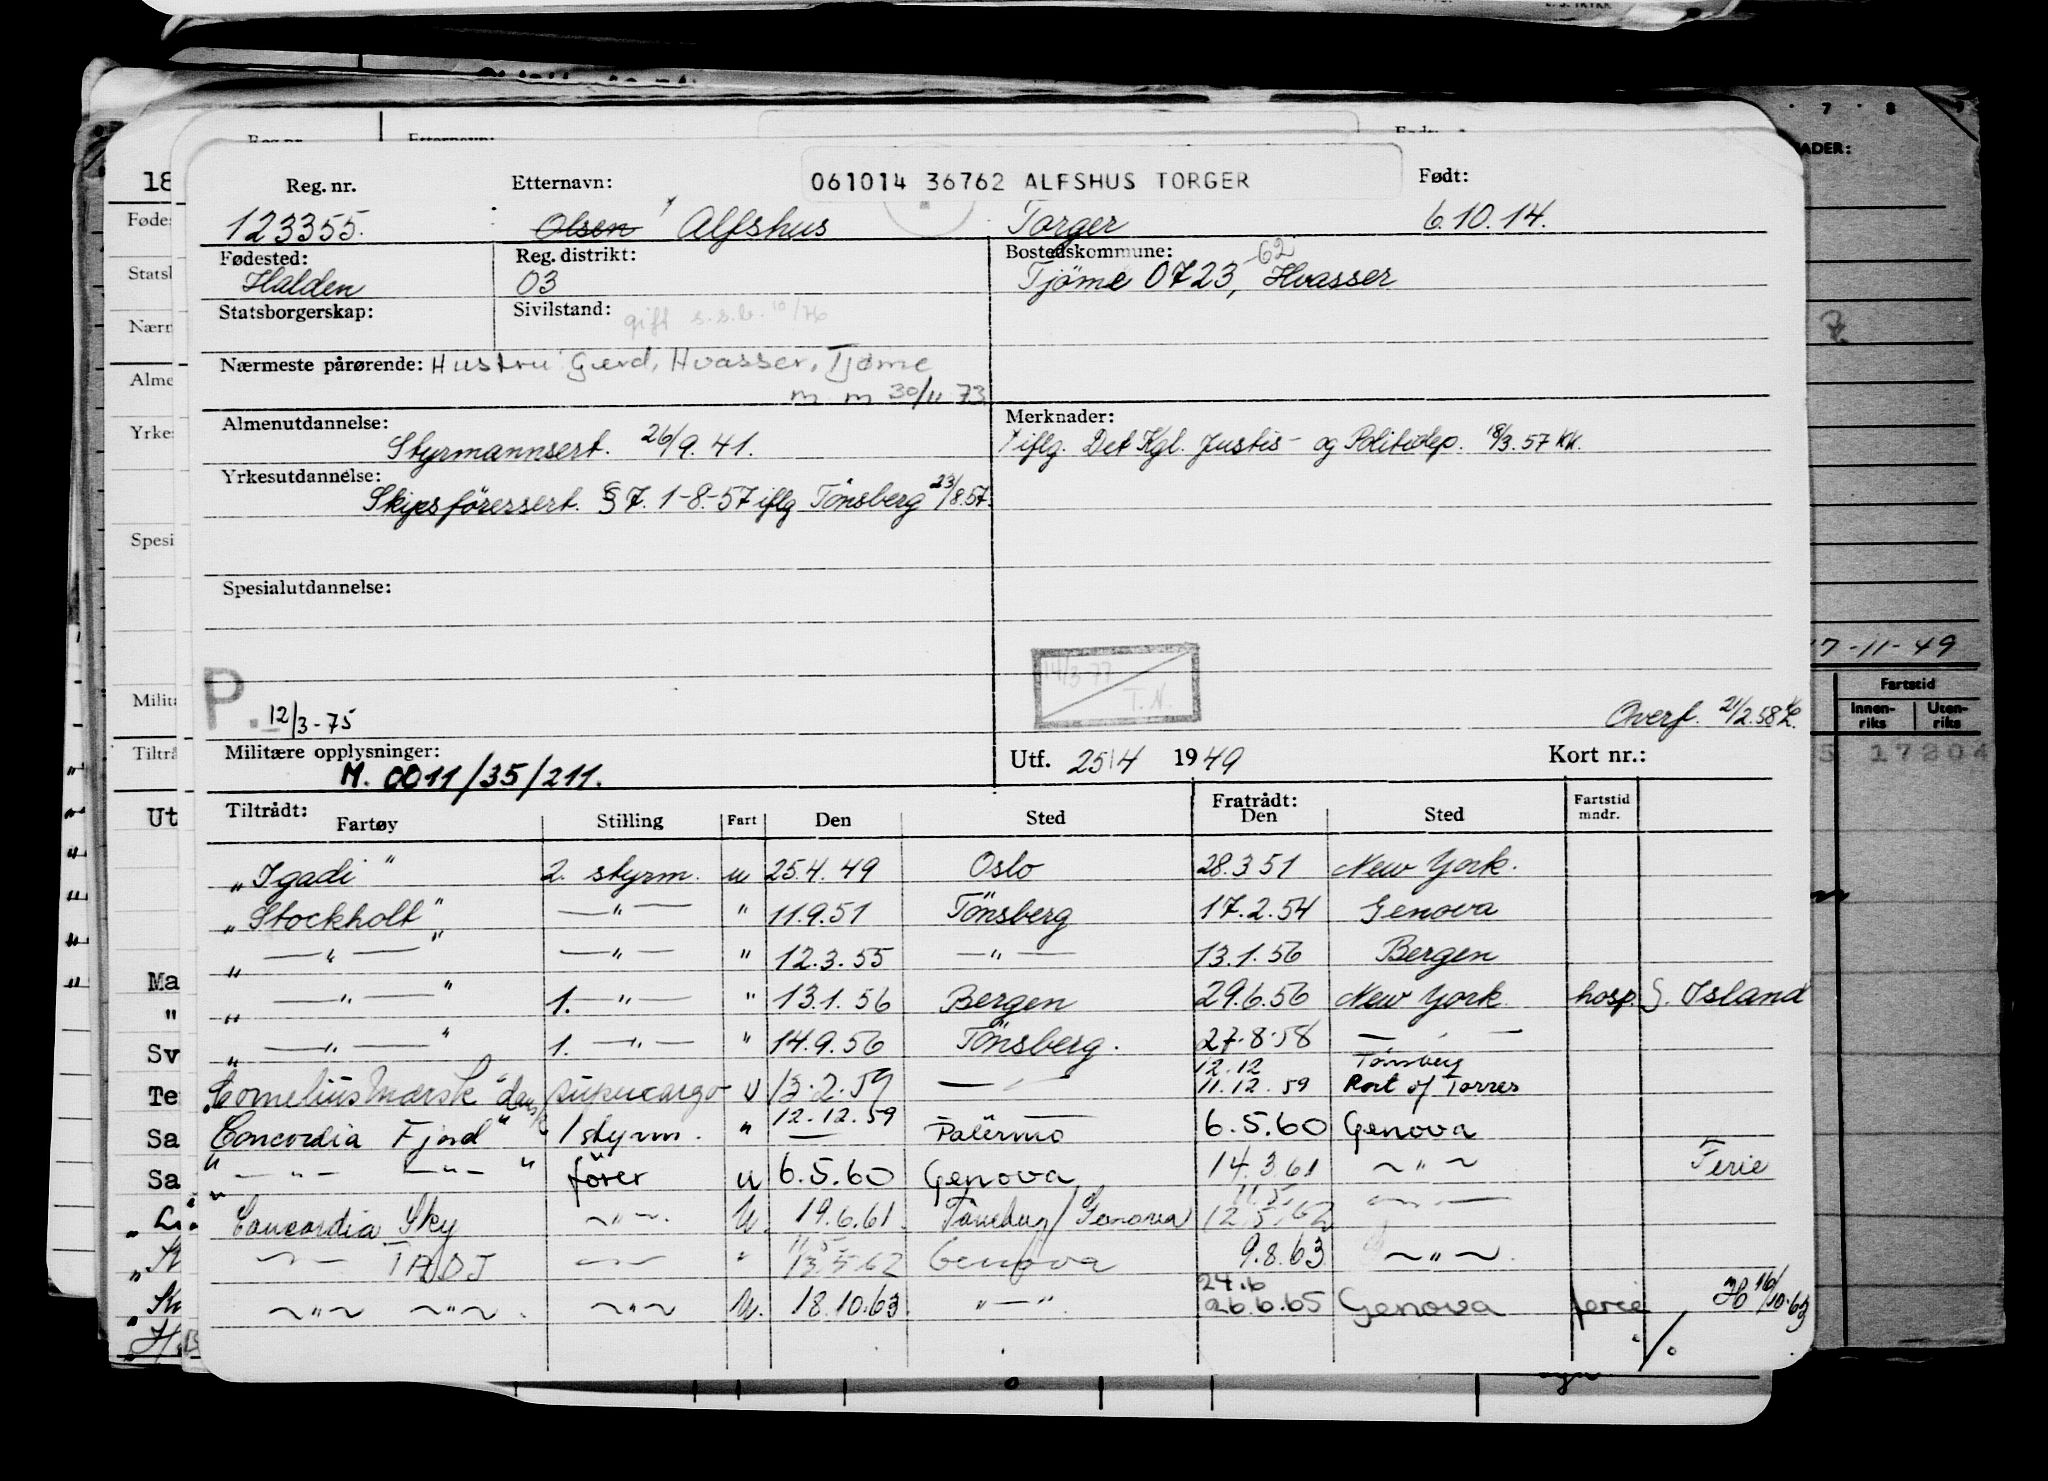 Reg. nr. Etternavn: 061014 36762 ALFSHUS TORGER Født:
123355. Olsen Alfshus Torger 6.10.14.
Fødested: Reg. distrikt: Bostedskommune: -62
Halden 03 Tjöme 0723, Hvasser
Statsborgerskap: Sivilstand: gift s.s.b. 10/76
Nærmeste pårørende: Hustru Gerd, Hvasser, Tjøme
m m 30/11 73
Almenutdannelse: Merknader:
Styrmannsert. 26/9.41. iflg. Det Kgl. Justis- og Politidep. 18/3.57 KK.
Yrkesutdannelse:
Skipsföressert. § 7. 1-8-57 iflg Tönsberg 23/8.57.
Spesialutdannelse:
14/3-77
T.N.
P. 12/3-75 Overf. 21/2.58
Militære opplysninger: Utf. 25/4 1949 Kort nr.:
M. 0011/35/211.
Tiltrådt: Fratrådt: Fartstid
Fartøy Stilling Fart Den Sted Den Sted mndr.
"Igadi" 2. styrm. u 25.4.49 Oslo 28.3 51 New York.
"Stockholt" —"— " 11.9.51 Tönsberg 17.2.54 Genova
" —"— " —"— " 12.3.55 —"— 13.1.56 Bergen
" —"— " 1. —"— " 13.1.56 Bergen 29.6.56 New York hosp. Island
" —"— " 1. —"— " 14.9.56 Tönsberg. 27.8.58 —"—
12.12 Tønsberg
"Cornelius Mærsk" dansk supercargo u 13.2.59 —"— 11.12.59 Port of Torres
12.12.59
Concordia Fjord" 1 styrm. " — Palermo 6.5.60 Genova
" —"— —"— " fører u 6.5.60 Genova 14.3.61 ~"~ Ferie
11.5.
"Concordia Sky ~"~ U. 19.6.61. Tönsberg/Genova 12.5.62 —"—
11.5
—"— TADJ —"— " 13.5.62 Genova 9.8.63 ~"~
24.6
~"~ ~"~ ~"~ U. 18.10.63. "—". 26.6.65 Genova ferie 16/10.63
Fødes
Nærm
Alme
Yrke
Spesi
Tiltrå
Ut
Ma
Sv
Te
Sa
Sa
17-11-49
Fartstid
Innen-riks Uten-riks